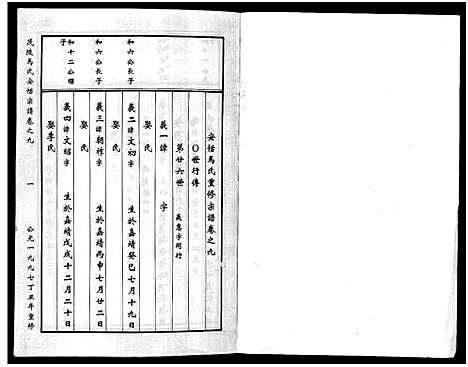 安恬馬氏重修宗譜卷之九
〇世行傳
第廿六世 義惠字同行
義一諱 字
娶 氏
和六公長子
義二諱文初字 生於嘉靖癸巳七月十九日
娶 氏
和六公次子
義三諱朝祚字 生於嘉靖丙申七月廿二日
娶 氏
和十二公繼子
義四諱文紹字 生於嘉靖戊戌十二月二十日
娶李氏
茂陵馬氏安恬宗譜卷之九 一 公元一九九七丁丑年重修